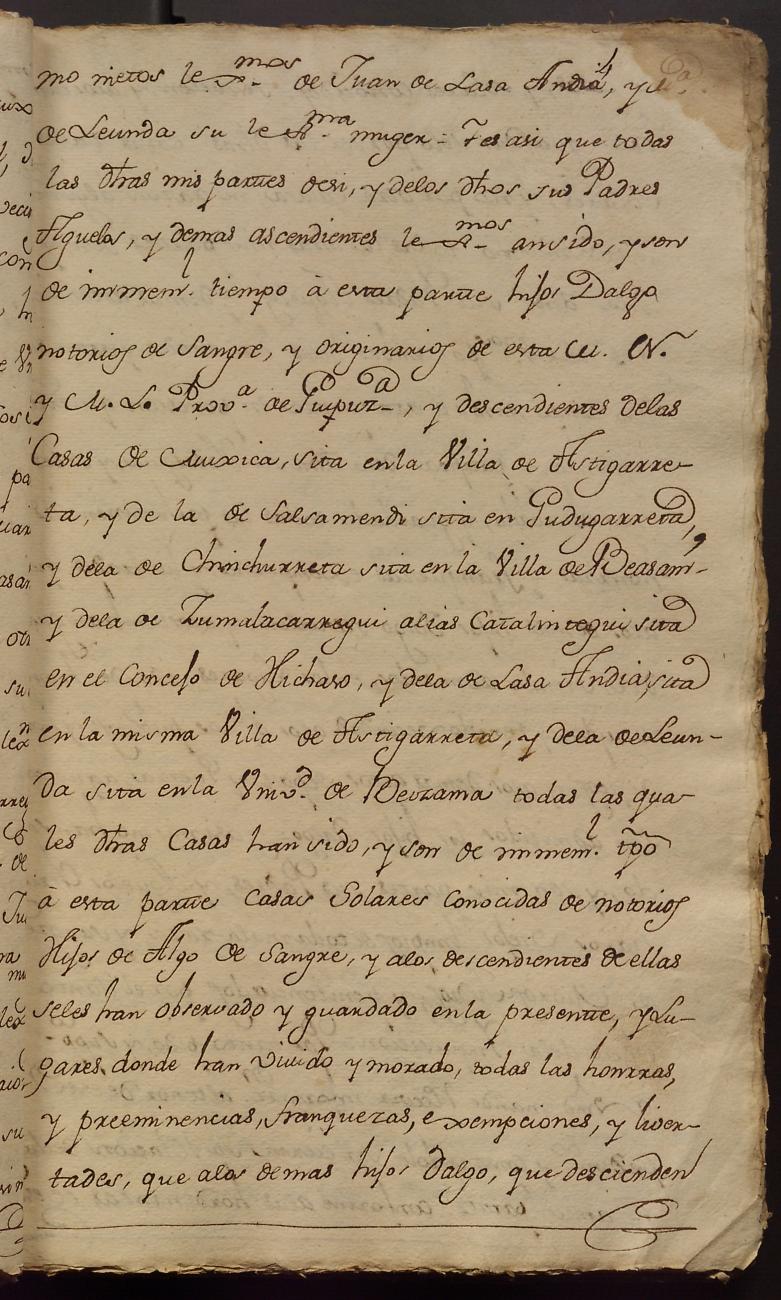 mo nietos lexmos de Juan de Lasa Andia, y
de Leunda su lexma muger = Y es asi que todas
las dhas mis partes de si, y delos dhos sus Padres
Aguelos, y demas ascendientes lexmos an sido, y son
de immeml. tiempo à esta parte hijos Dalgo
notorios de Sangre, y originarios de esta M. N.
y M. L. Prova. de Guipuza, y descendientes delas
Casas de Muxica, sita enla Villa de Astigarre-
ta, y de la de Salsamendi sita en Gudugarreta,
y dela de Chinchurreta sita en la Villa de Beasain-
y dela de Zumalacarregui alias Catalintegui sita
en el Concejo de Hichaso, y dela de Lasa Andia, sita
en la misma Villa de Astigarreta, y dela de Leun-
da sita enla Univd. de Bedzama todas las qua-
les dhas Casas han sido, y son de immeml. tpo
à esta parte Casas Solares Conocidas de notorios
Hijos de Algo de Sangre, y alos descendientes de ellas
seles han observado y guardado enla presente, y Lu-
gares donde han vivido y morado, todas las honrras,
y preeminencias, franquezas, exempciones, y liver-
tades, que alos demas hijos dalgo, que descienden